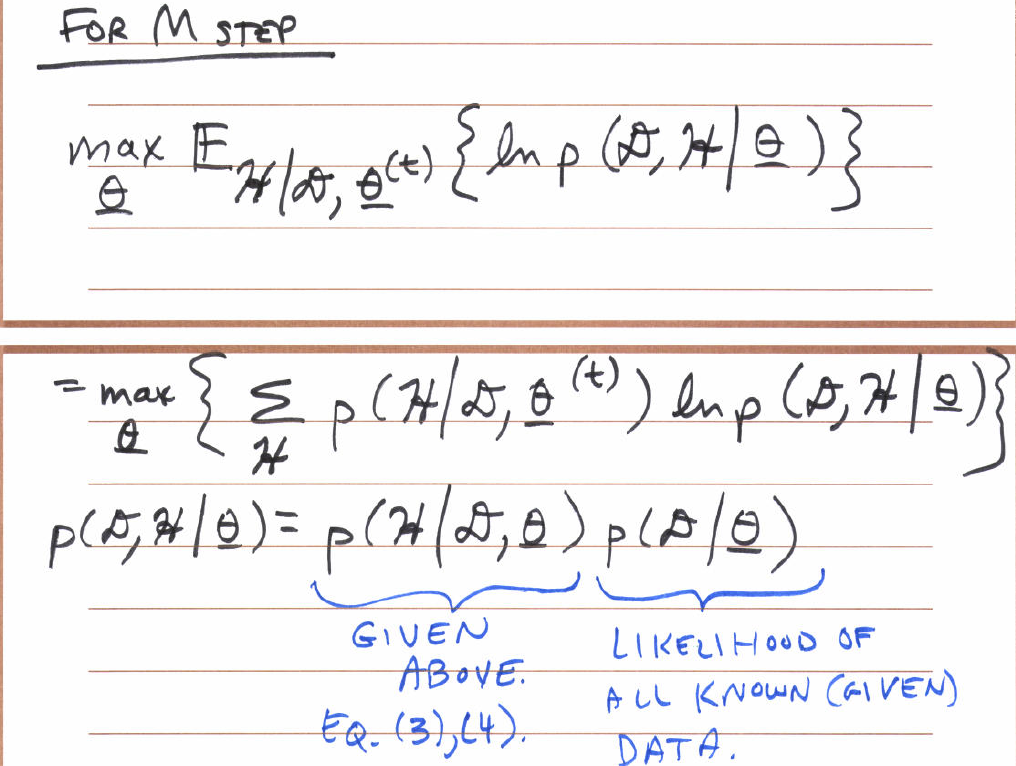 FOR M STEP
max_θ̲ E_{ℋ|𝒟, θ̲^(t)} { ln p (𝒟, ℋ | θ̲ ) }
= max_θ̲ { Σ_ℋ p (ℋ | 𝒟, θ̲^(t) ) ln p (𝒟, ℋ | θ̲) }
p(𝒟, ℋ | θ̲) = p(ℋ | 𝒟, θ̲ ) p(𝒟 | θ̲)
GIVEN
ABOVE.
EQ. (3),(4).
LIKELIHOOD OF
ALL KNOWN (GIVEN)
DATA.